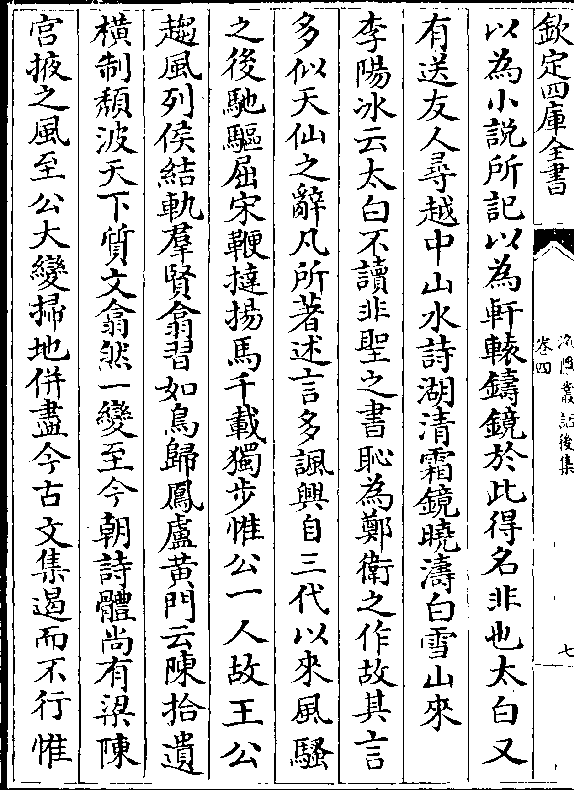 欽定四庫全書
漁隱叢話後集
卷四
七
以為小說所記以為軒轅鑄鏡於此得名非也太白又
有送友人尋越中山水詩湖清霜鏡曉濤白雪山來
李陽冰云太白不讀非聖之書恥為鄭衛之作故其言
多似天仙之辭凡所著述言多諷興自三代以來風騷
之後馳驅屈宋鞭撻揚馬千載獨步惟公一人故王公
趨風列侯結軌羣賢翕習如鳥歸鳳盧黄門云陳拾遺
横制頽波天下質文翕然一變至今朝詩體尚有梁陳
宫掖之風至公大變掃地併盡今古文集遏而不行惟